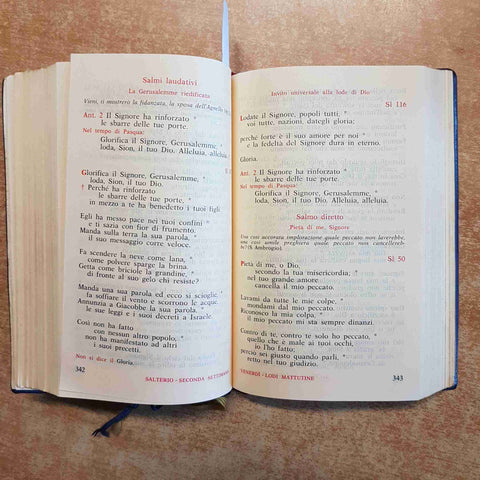 Salmi laudativi
La Gerusalemme riedificata
Vieni, ti mostrerò la fidanzata, la sposa dell'Agnello
Ant. 2 Il Signore ha rinforzato *
le sbarre delle tue porte.
Nel tempo di Pasqua:
Glorifica il Signore, Gerusalemme, *
loda, Sion, il tuo Dio. Alleluia, alleluia.
Glorifica il Signore, Gerusalemme, *
loda, Sion, il tuo Dio.
† Perché ha rinforzato
le sbarre delle tue porte, *
in mezzo a te ha benedetto i tuoi figli.
Egli ha messo pace nei tuoi confini *
e ti sazia con fior di frumento.
Manda sulla terra la sua parola, *
il suo messaggio corre veloce.
Fa scendere la neve come lana, *
come polvere sparge la brina.
Getta come briciole la grandine, *
di fronte al suo gelo chi resiste?
Manda una sua parola ed ecco si scioglie, *
fa soffiare il vento e scorrono le acque.
Annunzia a Giacobbe la sua parola, *
le sue leggi e i suoi decreti a Israele.
Così non ha fatto
con nessun altro popolo, *
non ha manifestato ad altri
i suoi precetti.
Non si dice il Gloria.
342
SALTERIO - SECONDA SETTIMANA
Invito universale alla lode di Dio
Sl 116
Lodate il Signore, popoli tutti, *
voi tutte, nazioni, dategli gloria;
perché forte è il suo amore per noi *
e la fedeltà del Signore dura in eterno.
Gloria.
Ant. 2 Il Signore ha rinforzato *
le sbarre delle tue porte.
Nel tempo di Pasqua:
Glorifica il Signore, Gerusalemme, *
loda, Sion, il tuo Dio. Alleluia, alleluia.
Salmo diretto
Pietà di me, Signore
Una così accorata implorazione quale peccato non laverebbe,
una così umile preghiera quale peccato non cancellereb-
be? (S. Ambrogio).
Sl 50
Pietà di me, o Dio,
secondo la tua misericordia; *
nel tuo grande amore
cancella il mio peccato.
Lavami da tutte le mie colpe, *
mondami dal mio peccato.
Riconosco la mia colpa, *
il mio peccato mi sta sempre dinanzi.
Contro di te, contro te solo ho peccato, *
quello che è male ai tuoi occhi,
io l'ho fatto;
perciò sei giusto quando parli, *
retto nel tuo giudizio.
343
VENERDÌ - LODI MATTUTINE